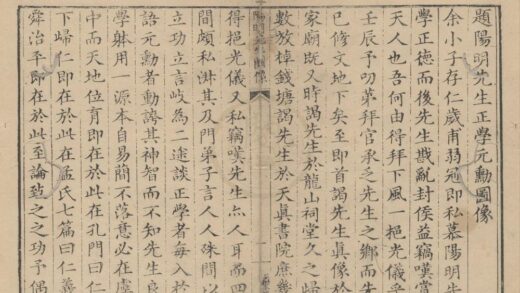 題陽明先生正學元勳圖像
余小子存仁歲甫弱冠即私慕陽明
學正德而後先生戡亂封侯益竊嘆
天人也吾何由得拜下風一挹光儀乎
壬辰予叨第拜官承乏先生之鄉而先
已修文地下矣至即首謁先生真像於
家廟既又時謁先生於龍山祠堂久之歸
數放棹錢塘謁先生於天真書院庶幾
得挹光儀又私竊嘆先生亦人耳而四
間頗私淑其及門弟子言人人殊間以
立功立言岐為二途談正學者每入於
語元勳者動誇其神智而不知先生良
學躰用一源本自易簡不落意必在虞
中而天地位育即在於此孔門曰仁
下歸仁即在於此孟氏七篇曰仁義
舜治平即在於此至論致之之功子偶